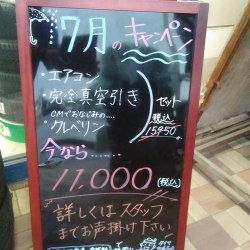 7月のキャンペーン
・エアコン
・完全真空引き
CMでおなじみの....
・クレベリン
セット
税込
15950
今なら......
11,000(税込)
詳しくはスタッフ
までお声掛け下さい